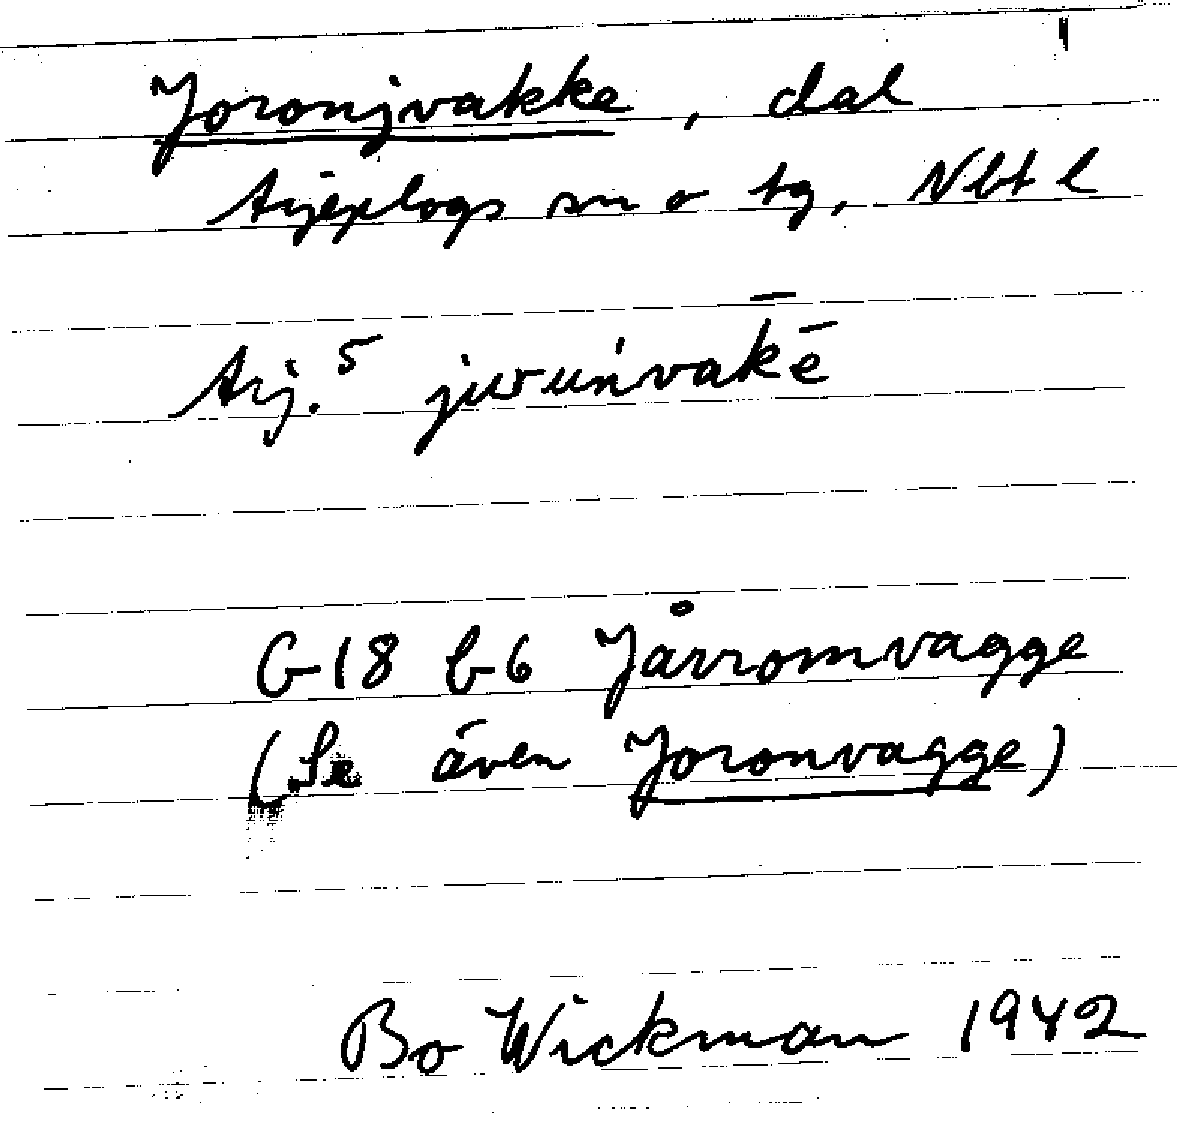 Joronjvakke, dal
Arjeplogs sn o tg, Nbt l
Arj.⁵ juvuńvak̄ē
G-18 b-6 Jårromvagge
(Se även Joronvagge)
Bo Wickman 1942